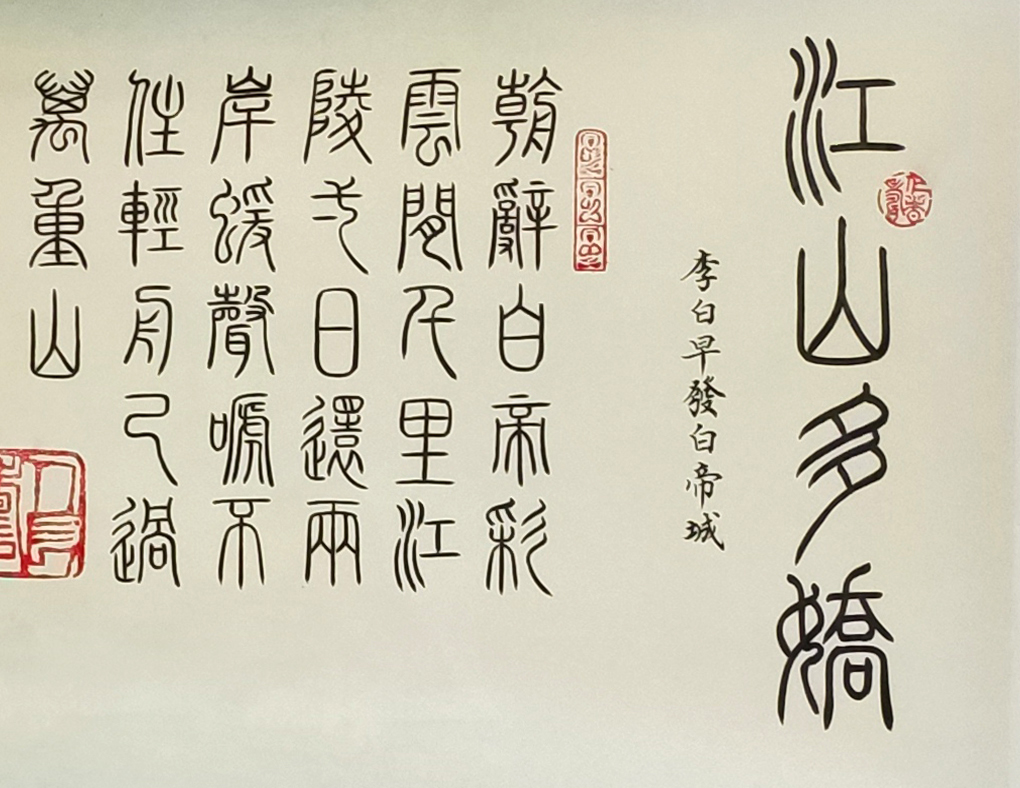 江山多嬌
李白早發白帝城
朝辭白帝彩
雲間千里江
陵弌日還兩
岸蝯聲嗁不
住輕舟已過
萬重山